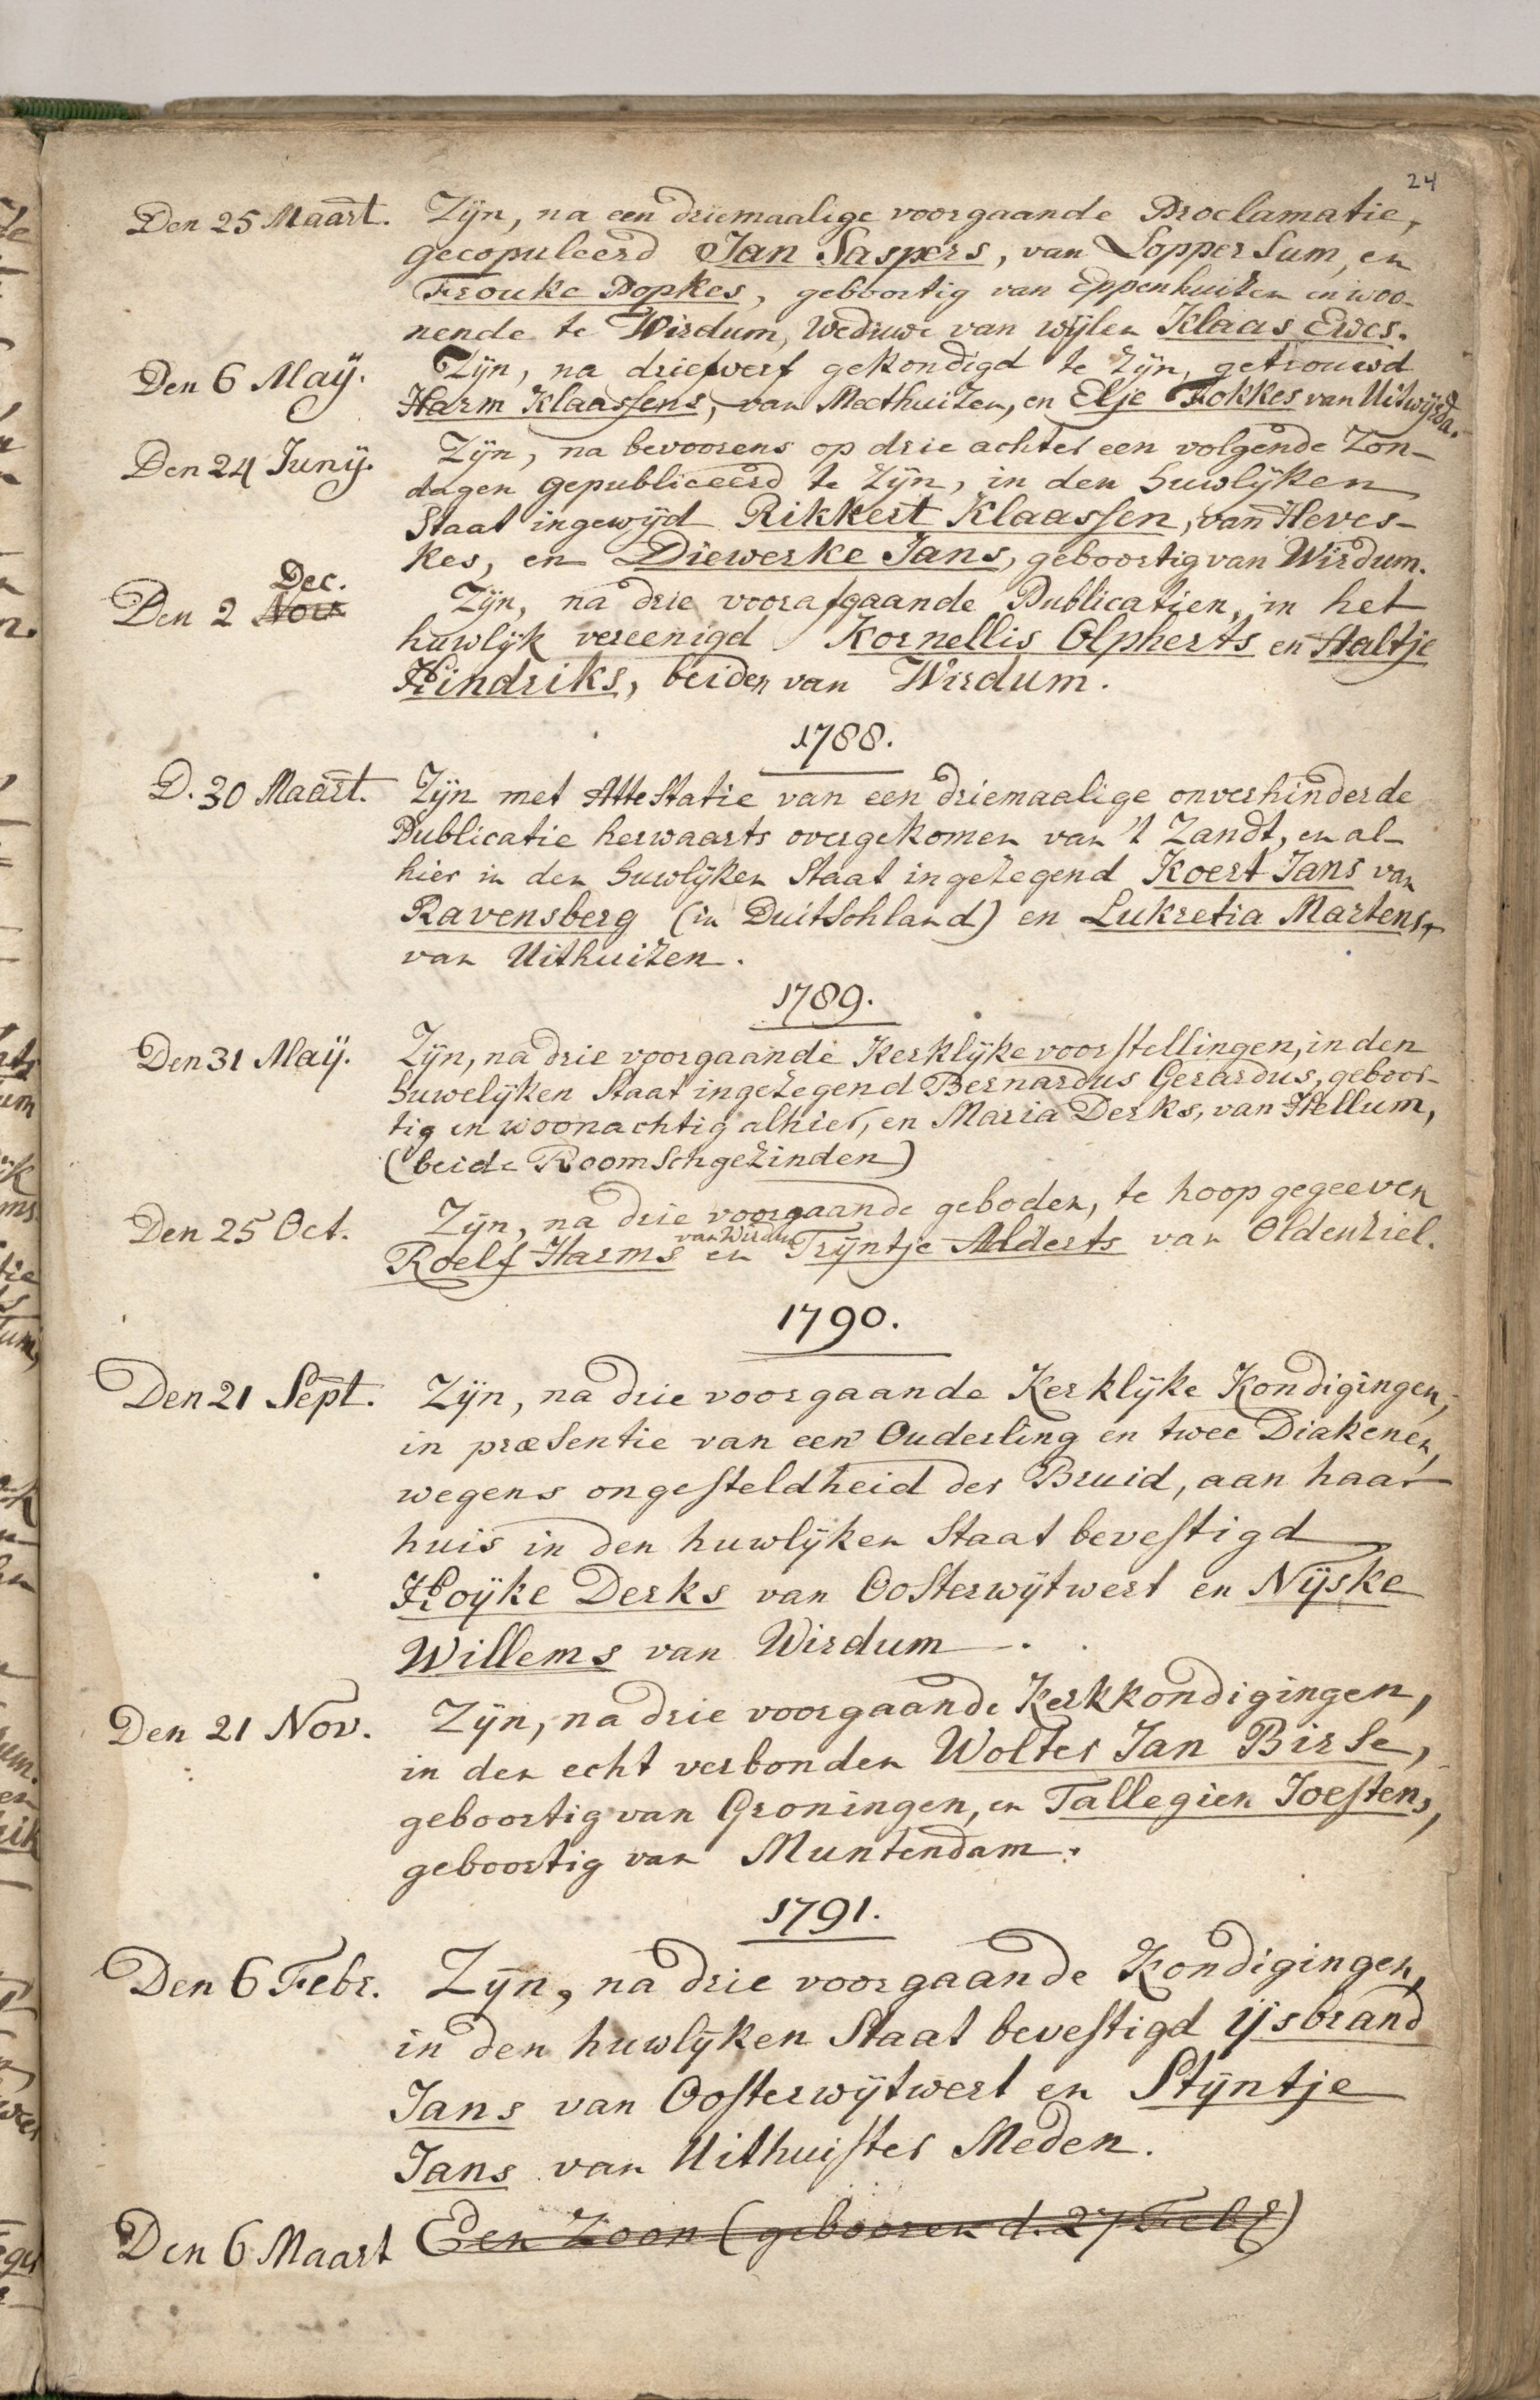 24
Den 25 Maart. Zijn, na een driemaalige voorgaande Proclamatie,
gecopuleerd Jan Jaspers, van Loppersum, en
Frouke Popkes, geboortig van Eppenhuizen en woo-
nende te Wirdum, Weduwe van wijlen Klaas Ewes.
Den 6 Maÿ. Zijn, na driewerf gekondigd te zijn, getrouwd
Harm Klaassens, van Meethuizen, en Elje Fokkes van Uitwijrda.
Den 24 Junÿ. Zijn, na bevoorens op drie achter een volgende Zon-
dagen gepubliceerd te zijn, in den huwlijken
Staat ingewijd Rikkert Klaassen, van Heves-
kes, en Diewerke Jans, geboortig van Wirdum.
Dec.
Den 2 Nov. Zijn, na drie voorafgaande Publicatien, in het
huwlijk vereenigd Kornellis Olpherts en Aaltje
Hindriks, beiden van Wirdum.
1788.
D. 30 Maart. Zijn met Attestatie van een driemaalige onverhinderde
Publicatie herwaarts overgekomen van 't Zandt, en al-
hier in den huwlijken Staat ingezegend Koert Jans van
Ravensberg (in Duitschland) en Lukretia Martens,
van Uithuizen.
1789.
Den 31 Maÿ. Zijn, na drie voorgaande Kerklijke voorstellingen, in den
huwelijken Staat ingezegend Bernardus Gerardus, geboor-
tig en woonachtig alhier, en Maria Derks, van Hellum,
(beide Roomschgezinden)
Den 25 Oct. Zijn, na drie voorgaande geboden, te hoop gegeeven
van Wirdum
Roelf Harms en Trijntje Alderts van Oldenziel.
1790.
Den 21 Sept. Zijn, na drie voorgaande Kerklijke Kondigingen,
in præsentie van een Ouderling en twee Diakenen,
wegens ongesteldheid der Bruid, aan haar
huis in den huwlijken Staat bevestigd
Hoijke Derks van Oosterwijtwert en Nijske
Willems van Wirdum.
Den 21 Nov. Zijn, na drie voorgaande Kerkkondigingen,
in den echt verbonden Wolter Jan Birse,
geboortig van Groningen, en Tallegien Joestens,
geboortig van Muntendam.
1791.
Den 6 Febr. Zijn, na drie voorgaande Kondigingen,
in den huwlijken Staat bevestigd ijsbrand
Jans van Oosterwijtwert en Stijntje
Jans van Uithuister Meden.
Den 6 Maart Een Zoon (gebooren d. 27 Febr)